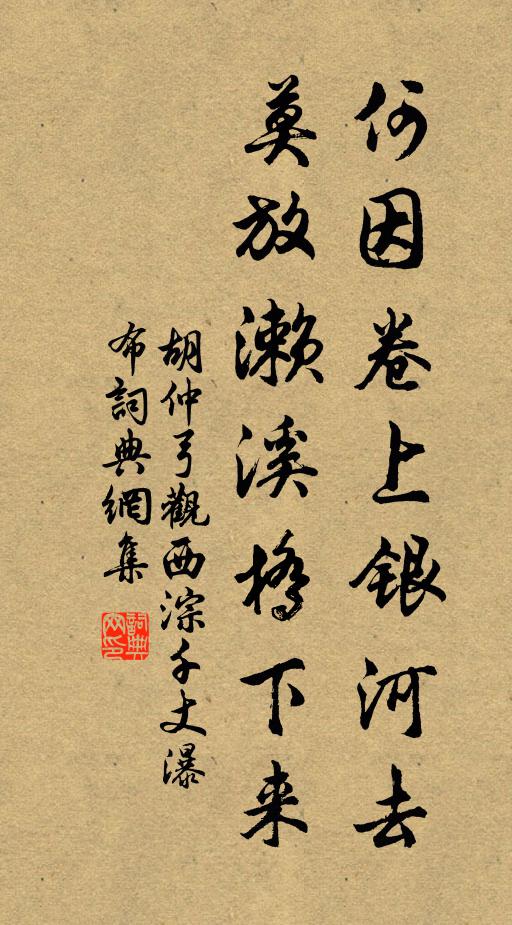 何因卷上銀河去
莫放濑溪橋下来
胡仲弓觀西淙千丈瀑
布詞典網集
詞典网印